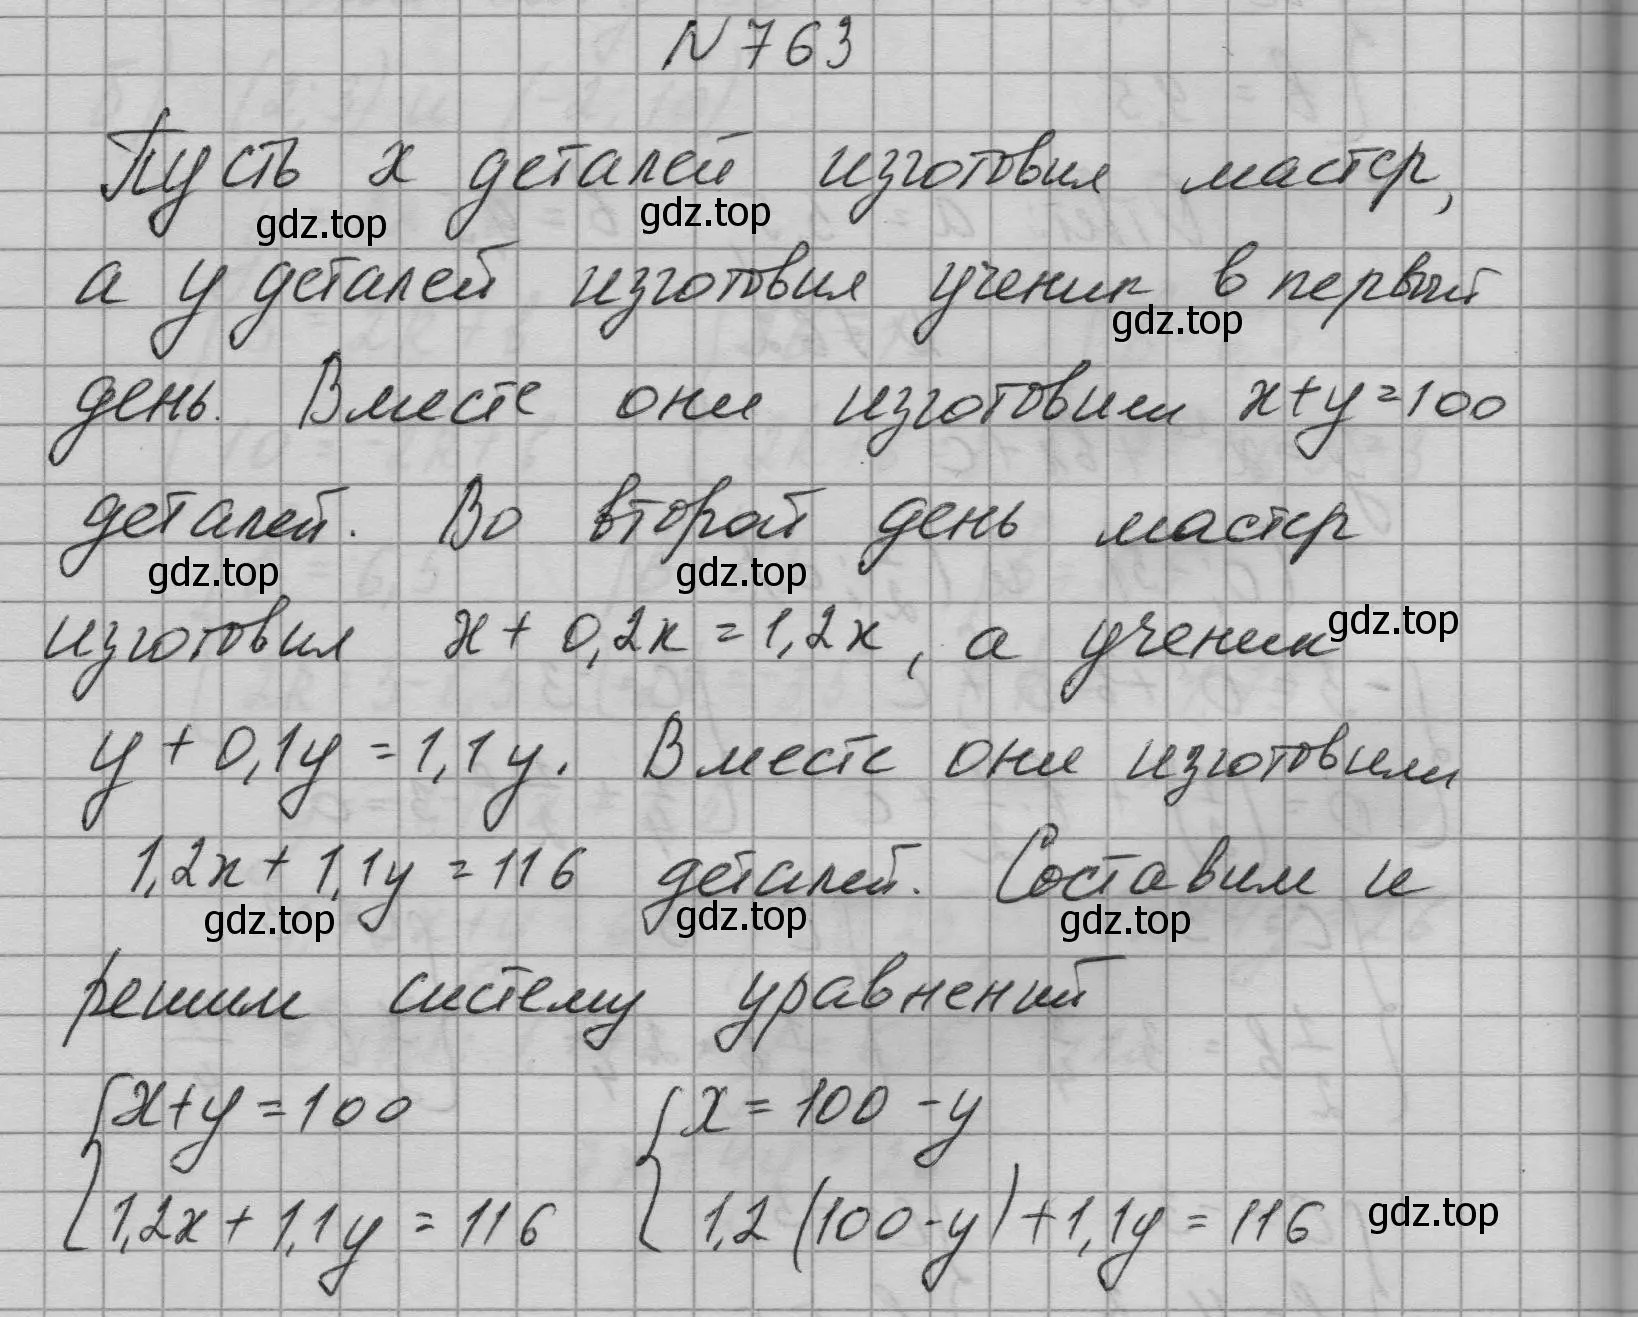 N 763
Пусть x деталей изготовил мастер,
gdz.top gdz.top
а y деталей изготовил ученик в первый
gdz.top
день. Вместе они изготовили x+y=100
деталей. Во второй день мастер
gdz.top gdz.top
изготовил x+0,2x=1,2x, а ученик gdz.top
y+0,1y=1,1y. Вместе они изготовили
1,2x+1,1y=116 деталей. Составим и
gdz.top gdz.top gdz.top
решим систему уравнений
{x+y=100 {x=100-y
1,2x+1,1y=116 1,2(100-y)+1,1y=116 gdz.top